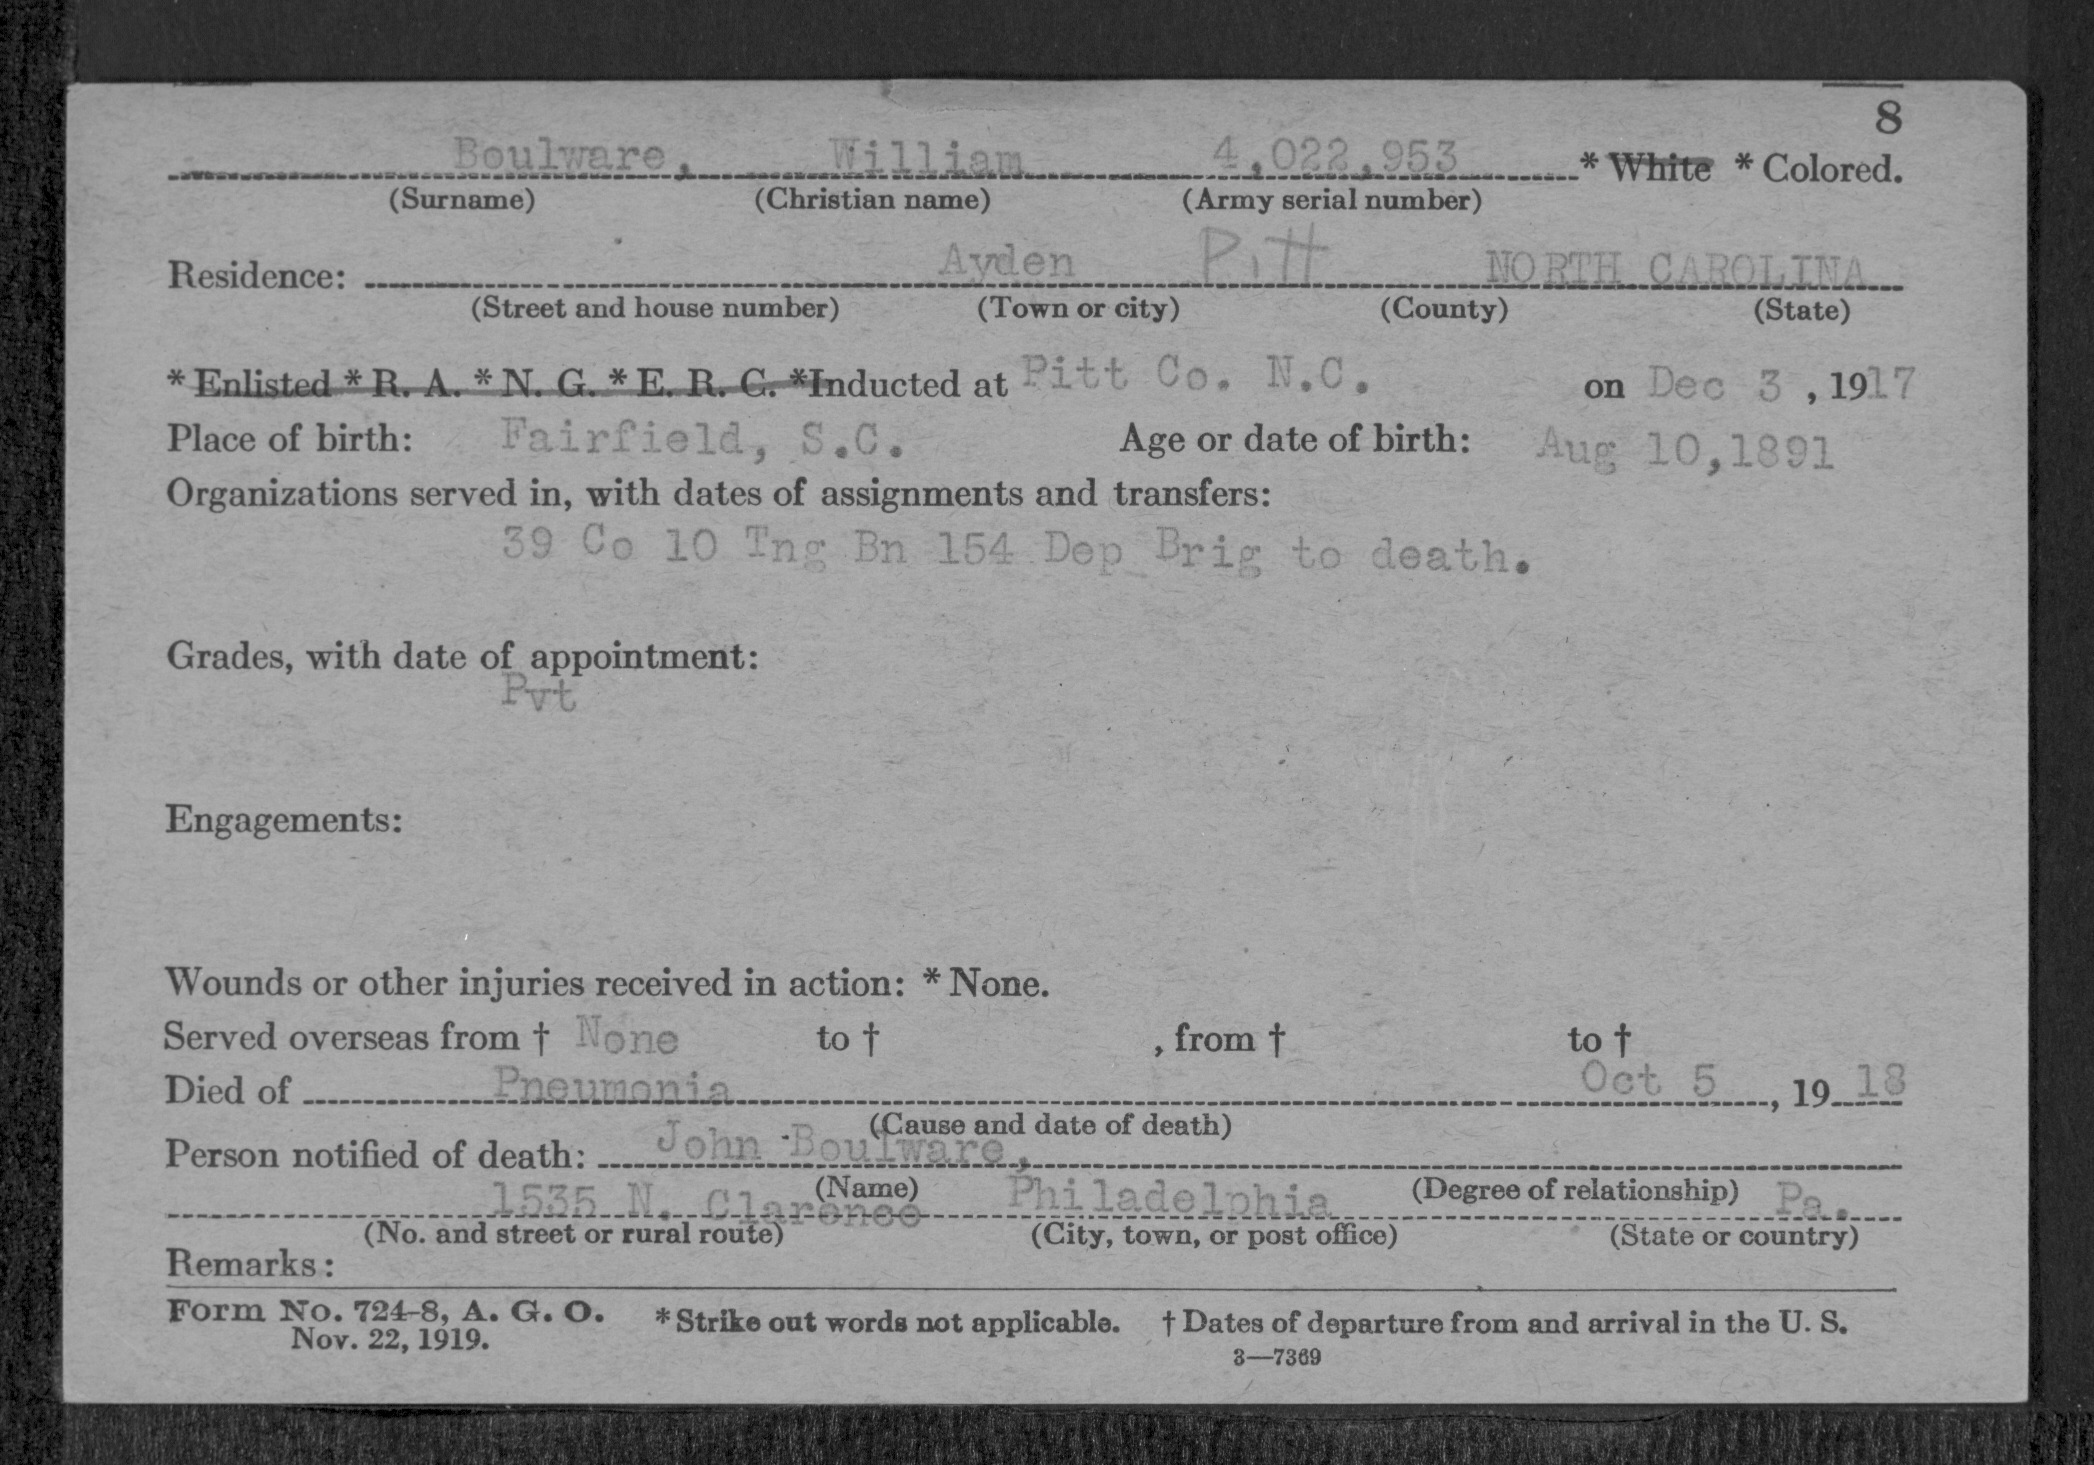 8
Boulware, William 4,022,953 * White * Colored.
(Surname) (Christian name) (Army serial number)
Residence: Ayden Pitt NORTH CAROLINA
(Street and house number) (Town or city) (County) (State)
* Enlisted * R. A. * N. G. * E. R. C. *Inducted at Pitt Co. N.C. on Dec 3 , 1917
Place of birth: Fairfield, S.C. Age or date of birth: Aug 10,1891
Organizations served in, with dates of assignments and transfers:
39 Co 10 Tng Bn 154 Dep Brig to death.
Grades, with date of appointment:
Pvt
Engagements:
Wounds or other injuries received in action: * None.
Served overseas from † None to † , from † to †
Died of Pneumonia Oct 5 , 19 18
(Cause and date of death)
Person notified of death: John Boulware,
(Name) (Degree of relationship)
1535 N. Clarence Philadelphia Pa.
(No. and street or rural route) (City, town, or post office) (State or country)
Remarks:
Form No. 724-8, A. G. O. * Strike out words not applicable. † Dates of departure from and arrival in the U. S.
Nov. 22, 1919.
3—7369